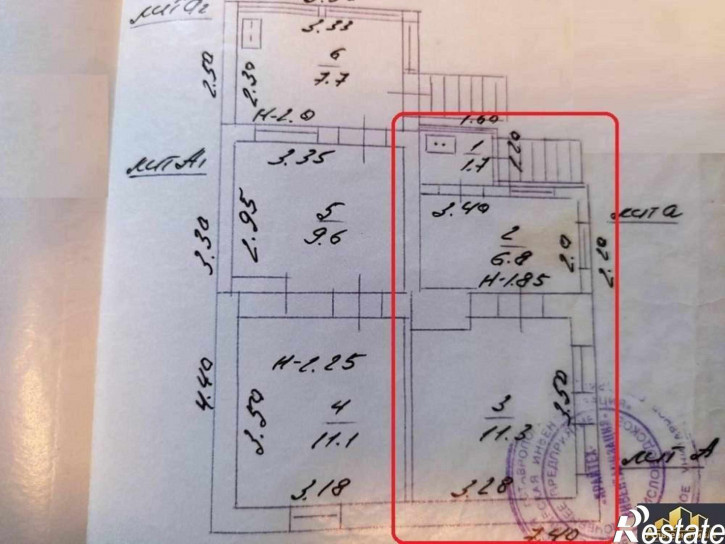 лит а2
3.33
6
7.7
2.50
2.30
Н-2.0
1.60
1
1.7
1.20
лит А1
3.35
3.40
лит а
5
9.6
2.95
3.30
2
6.8
2.0
2.20
Н-1.85
Н-2.25
4.40
3.50
4
11.1
3
11.3
3.50
лит А
3.18
3.28
7.40
Restate